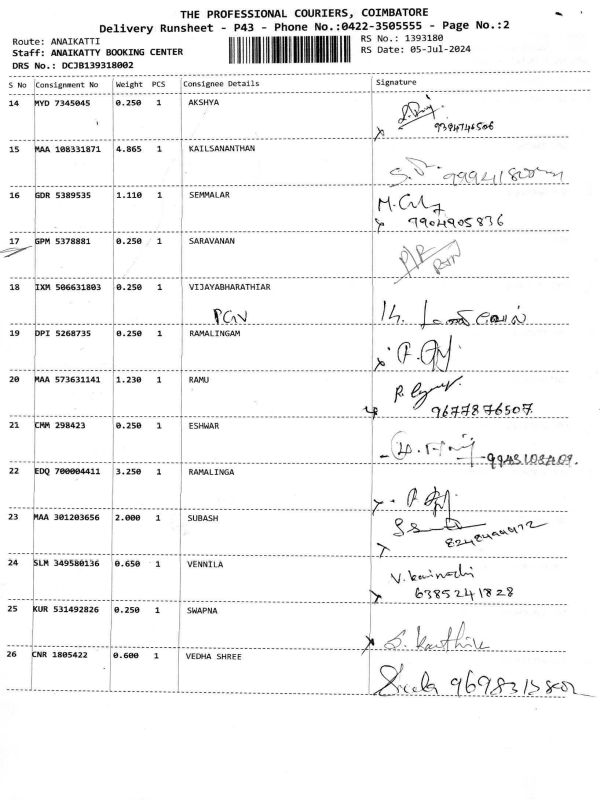 THE PROFESSIONAL COURIERS, COIMBATORE
Delivery Runsheet - P43 - Phone No.:0422-3505555 - Page No.:2
Route: ANAIKATTI
RS No.: 1393180
Staff: ANAIKATTY BOOKING CENTER
RS Date: 05-Jul-2024
DRS No.: DCJB139318002
S No Consignment No Weight PCS Consignee Details Signature
14 MYD 7345045 0.250 1 AKSHYA
9394746506
15 MAA 108331871 4.865 1 KAILSANANTHAN
16 GDR 5389535 1.110 1 SEMMALAR
7904905836
17 GPM 5378881 0.250 1 SARAVANAN
18 IXM 506631803 0.250 1 VIJAYABHARATHIAR
PGV
19 DPI 5268735 0.250 1 RAMALINGAM
20 MAA 573631141 1.230 1 RAMU
9677876507
21 CMM 298423 0.250 1 ESHWAR
22 EDQ 700004411 3.250 1 RAMALINGA
23 MAA 301203656 2.000 1 SUBASH
24 SLM 349580136 0.650 1 VENNILA
6385241828
25 KUR 531492826 0.250 1 SWAPNA
S. Karthik
26 CNR 1805422 0.600 1 VEDHA SHREE